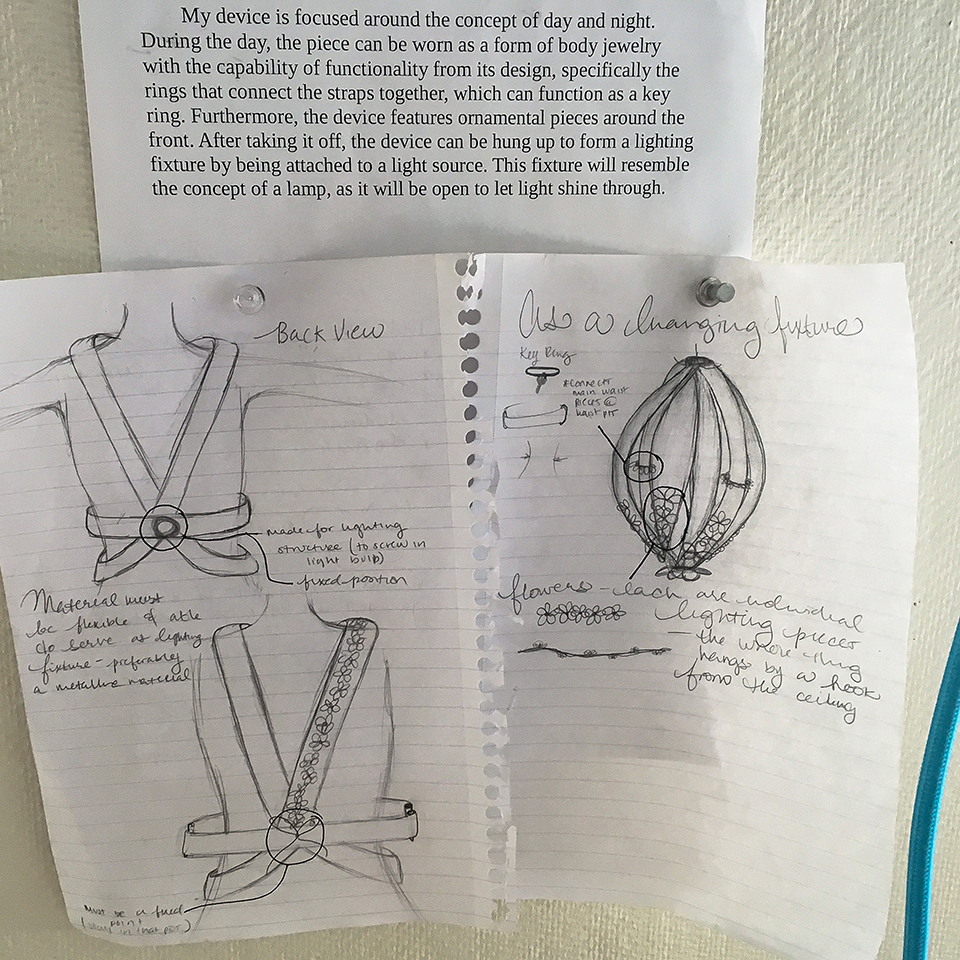 My device is focused around the concept of day and night.
During the day, the piece can be worn as a form of body jewelry
with the capability of functionality from its design, specifically the
rings that connect the straps together, which can function as a key
ring. Furthermore, the device features ornamental pieces around the
front. After taking it off, the device can be hung up to form a lighting
fixture by being attached to a light source. This fixture will resemble
the concept of a lamp, as it will be open to let light shine through.
Back View
made for lighting
structure (to screw in
light bulb)
fixed-position
Material must
be flexible & able
to serve as lighting
fixture - preferably
a metallic material
Must be a fixed
point
in that
As a changing fixture
Key Ring
*connect
main waist
pieces @
pt
flowers - each are individual
lighting pieces
- the whole thing
hangs by a hook
from the ceiling